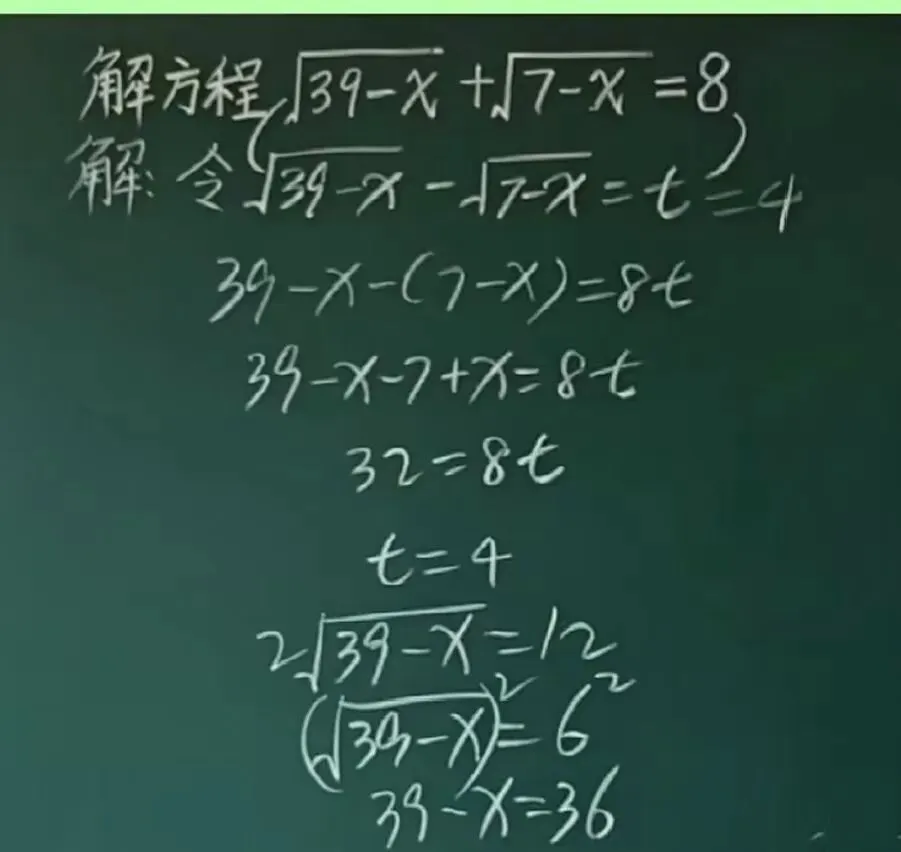 解方程 √39-x + √7-x = 8
解: 令 √39-x - √7-x = t = 4
39-x-(7-x)=8t
39-x-7+x=8t
32=8t
t=4
2√39-x=12
(√39-x)²=6²
39-x=36